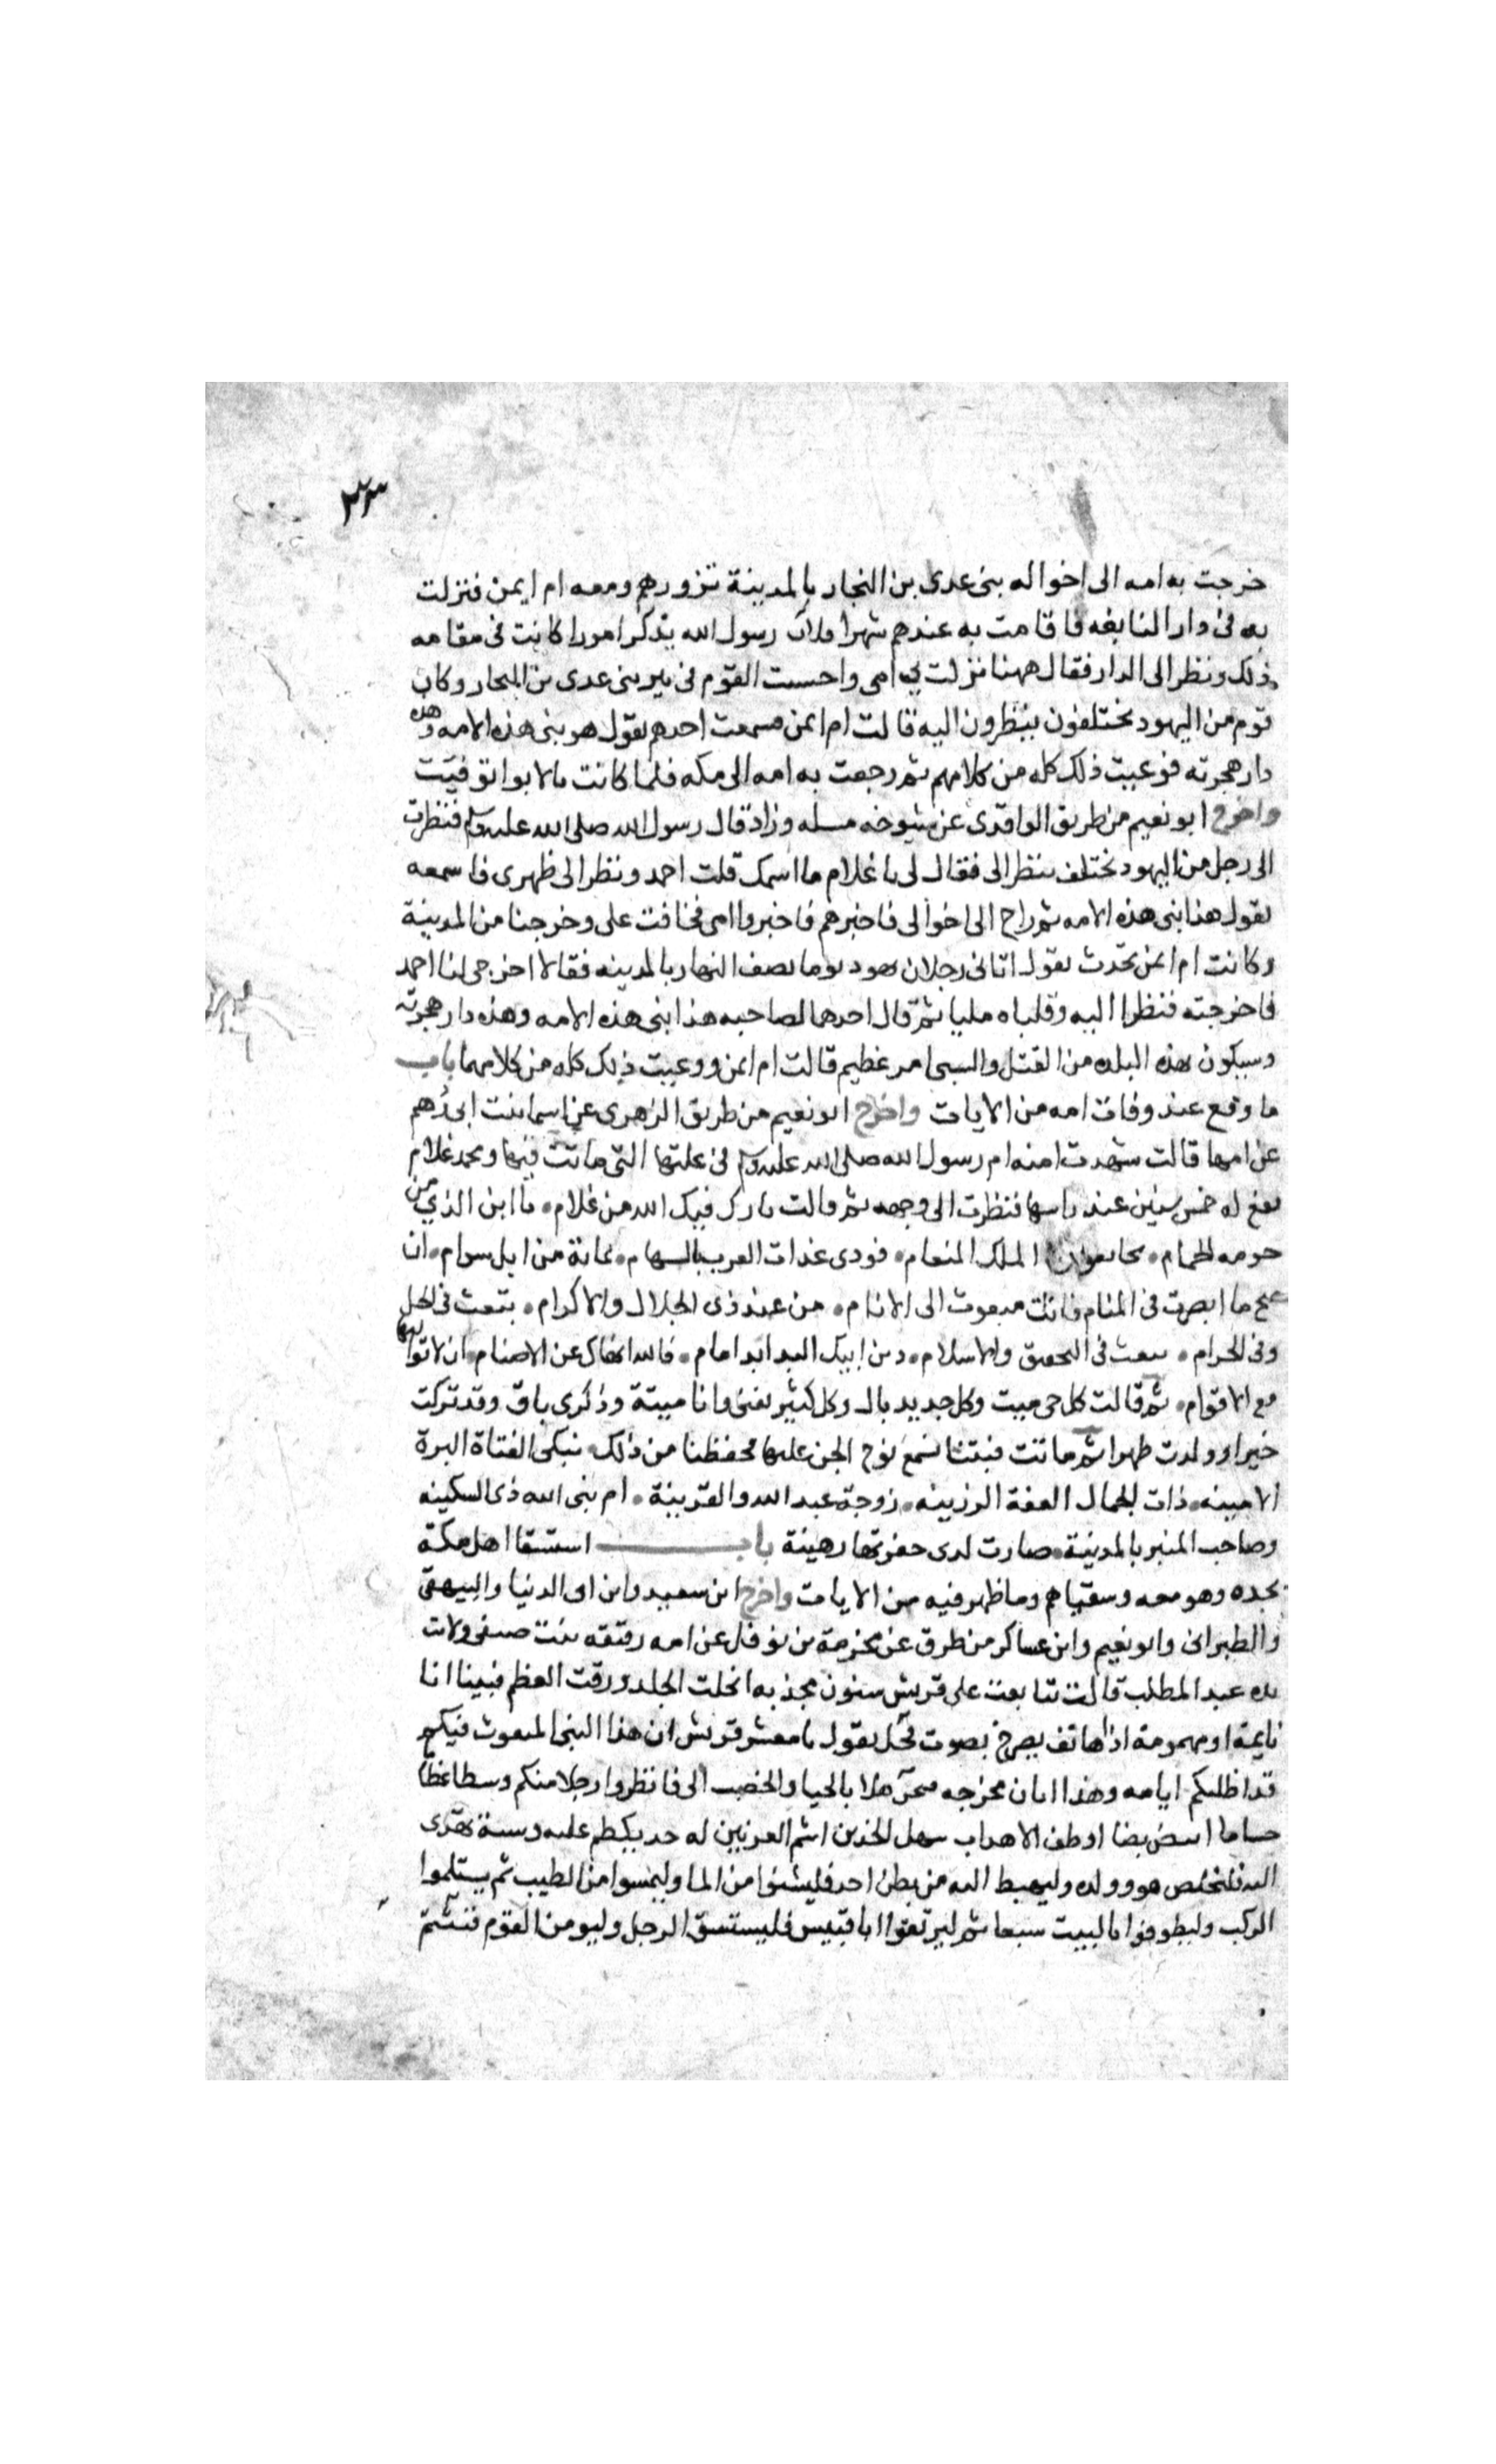 ٢٣
خرجت به امه الى اخواله بنى عدى بن النجار بالمدينة تزورهم ومعه ام ايمن فنزلت
به فى دار النابغه فاقامت به عندهم شهرا فكان رسول الله يذكر امورا كانت فى مقامه
ذلك ونظر الى الدار فقال ههنا نزلت بى امى واحسنت العوم فى بير بنى عدى بن النجار وكان
قوم من اليهود يختلفون ينظرون اليه قالت ام ايمن فسمعت احدهم يقول هو نبى هذه الامه وهذه
دار هجرته فوعيت ذلك كله من كلامهم ثم رجعت به امه الى مكه فلما كانت بالابوا توفيت
واخرج ابو نعيم من طريق الواقدى عن شيوخه مثله وزاد قال رسول الله صلى الله عليه وسلم فنظرت
الى رجل من اليهود يختلف ينظر الى فقال لى يا غلام ما اسمك قلت احمد ونظر الى ظهرى فاسمعه
يقول هذا نبى هذه الامه ثم راح الى اخوالى فاخبرهم فاخبروا امى فخافت على وخرجنا من المدينة
وكانت ام ايمن تحدث تقول اتانى رجلان يهود يوما نصف النهار بالمدينه فقالا اخرجى لنا احمد
فاخرجته فنظرا اليه وقلباه مليا ثم قال احدهما لصاحبه هذا نبى هذه الامه وهذه دار هجرته
وسيكون بهذه البلده من القتل والسبى امر عظيم قالت ام ايمن ووعيت ذلك كله من كلامهما باب
ما وقع عند وفات امه من الايات واخرج ابو نعيم من طريق الزهرى عن اسما بنت ابى رهم
عن امها قالت شهدت امنه ام رسول الله صلى الله عليه وسلم فى علتها التى ماتت فيها ومحمد غلام
يفع له خمس سنين عند راسها فنظرت الى وجهه ثم قالت بارك فيك الله من غلام يا ابن الذى من
حومه الحمام نجا بعون الملك المنعام فودى غدات الضرب بالسهام بمائة من ابل سوام ان
صح ما ابصرت فى المنام فانت مبعوث الى الانام من عند ذى الجلال والاكرام تبعث فى الحل
وفى الحرام تبعث فى التحقيق والاسلام دين ابيك البر ابراهام فالله انهاك عن الاصنام ان لا تواليها
مع الاقوام ثم قالت كل حى ميت وكل جديد بال وكل كثير يفنى وانا ميتة وذكرى باق وقد تركت
خيرا وولدت طهرا ثم ماتت فبتنا نسمع نوح الجن عليها فحفظنا من ذلك نبكى الفتاة البرة
الامينه ذات الجمال العفة الرزينه زوجة عبد الله والقرينة ام نبى الله ذى السكينه
وصاحب المنبر بالمدينة صارت لدى حفرتها رهينة باب استسقا اهل مكة
بجده وهو معه وسقياهم وما ظهر فيه من الايات واخرج ابن سعيد وابن ابى الدنيا والبيهقى
والطبرانى وابو نعيم وابن عساكر من طرق عن مخرمة بن نوفل عن امه رقيقه بنت صيفى وكانت
لده عبد المطلب قالت تتابعت على قريش سنون مجذبه انحلت الجلد ورقت العظم فبينا انا
نايمة او مهمومة اذا هاتف يصرخ بصوت صحل يقول يا معشر قريش ان هذا النبى المبعوث فيكم
قد اظلتكم ايامه وهذا ابان مخرجه فحى هلا بالحيا والخصب الى فانظروا رجلا منكم وسطا عظا
جساما ابيض بضا اوطف الاهداب سهل الخدين اشم العرنين له يكظم عليه وسنة تهدى
اليه فليخلص هو وولده وليهبط اليه من بطن احد فليشنوا من الما وليمسوا من الطيب ثم يستلموا
الركب وليطوفوا بالبيت سبعا ثم ليرتقوا ابا قبيس فليستسق الرجل وليومن القوم فنشتم